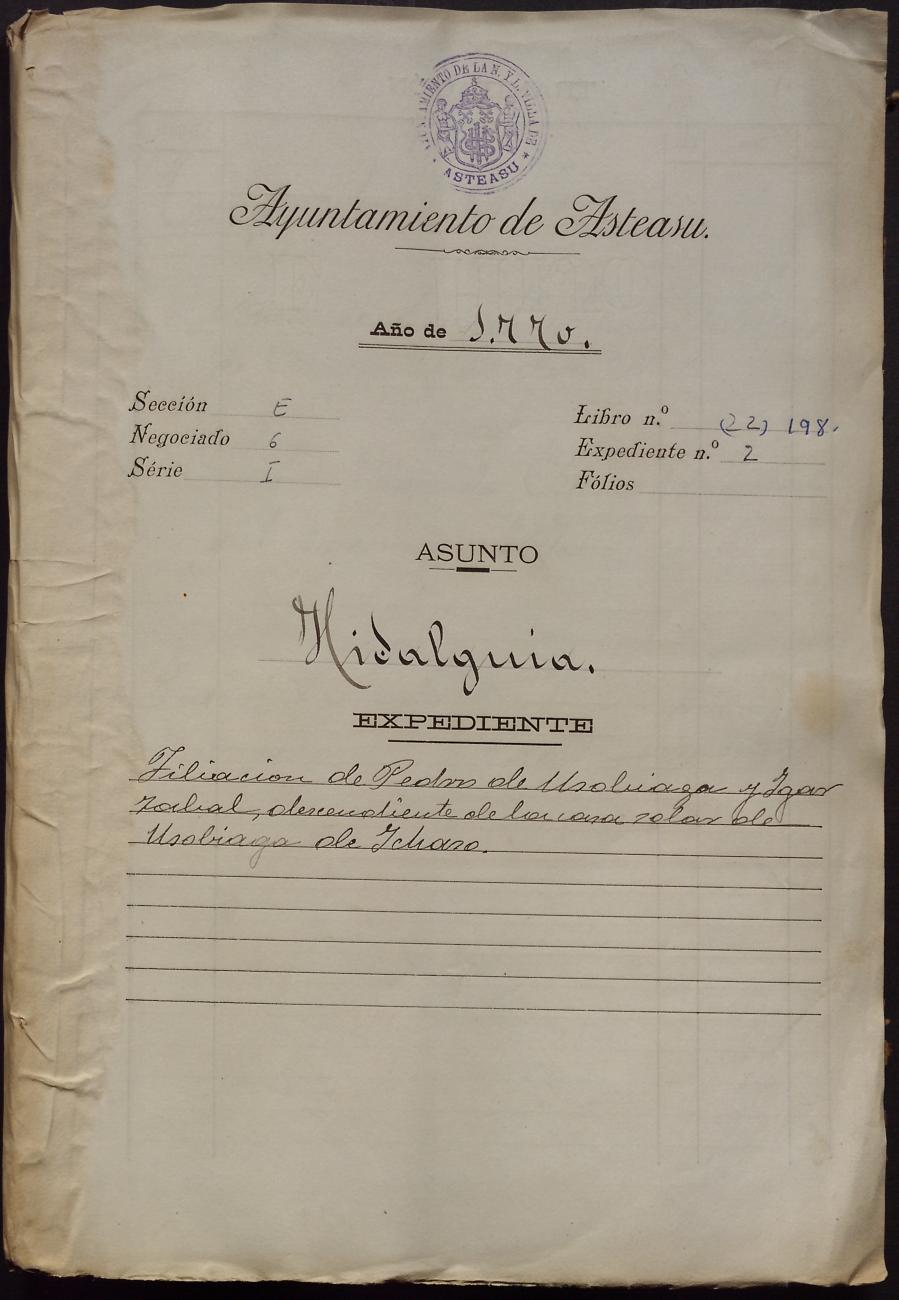 AYUNTAMIENTO DE LA N. Y L. VILLA DE
* ASTEASU *
Ayuntamiento de Asteasu.
Año de 1.770.
Sección E
Negociado 6
Série I
Libro n.º (22) 198.
Expediente n.º 2
Fólios
ASUNTO
Hidalguia.
EXPEDIENTE
Filiacion de Pedro de Usobiaga y Igar
zabal, descendiente de la casa solar de
Usobiaga de Icharo.